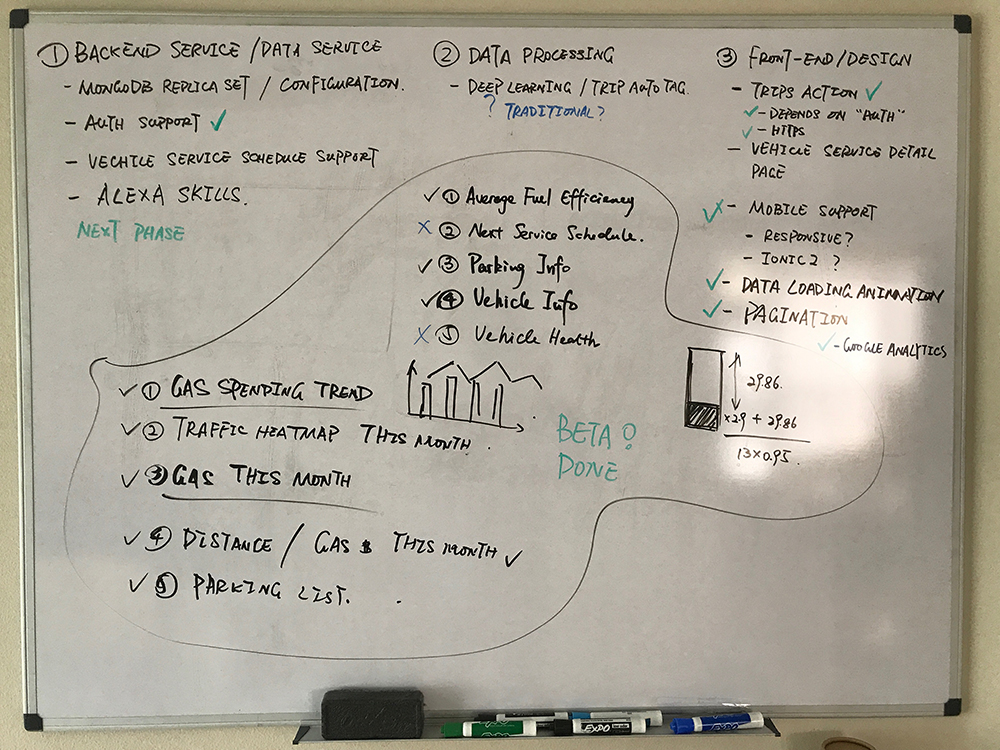 ① BACKEND SERVICE / DATA SERVICE
- MONGODB REPLICA SET / CONFIGURATION.
- AUTH SUPPORT ✓
- VECHILE SERVICE SCHEDULE SUPPORT
- ALEXA SKILLS.
NEXT PHASE
② DATA PROCESSING
- DEEP LEARNING / TRIP AUTO TAG.
? TRADITIONAL?
③ FRONT-END/DESIGN
- TRIPS ACTION ✓
✓ - DEPENDS ON "AUTH"
✓ - HTTPS
- VEHICLE SERVICE DETAIL
PAGE
- MOBILE SUPPORT
- RESPONSIVE?
- IONIC 2 ?
✓ - DATA LOADING ANIMATION
✓ - PAGINATION
✓ - GOOGLE ANALYTICS
✓ ① Average Fuel Efficiency
X ② Next Service Schedule.
✓ ③ Parking Info
✓ ④ Vehicle Info
X ⑤ Vehicle Health
✓ ① GAS SPENDING TREND
✓ ② TRAFFIC HEATMAP THIS MONTH.
✓ ③ GAS THIS MONTH
✓ ④ DISTANCE / GAS $ THIS MONTH ✓
✓ ⑤ PARKING LIST.
BETA
DONE
29.86.
×2.9 + 29.86
13×0.95.
EXPO
EXPO
EXPO